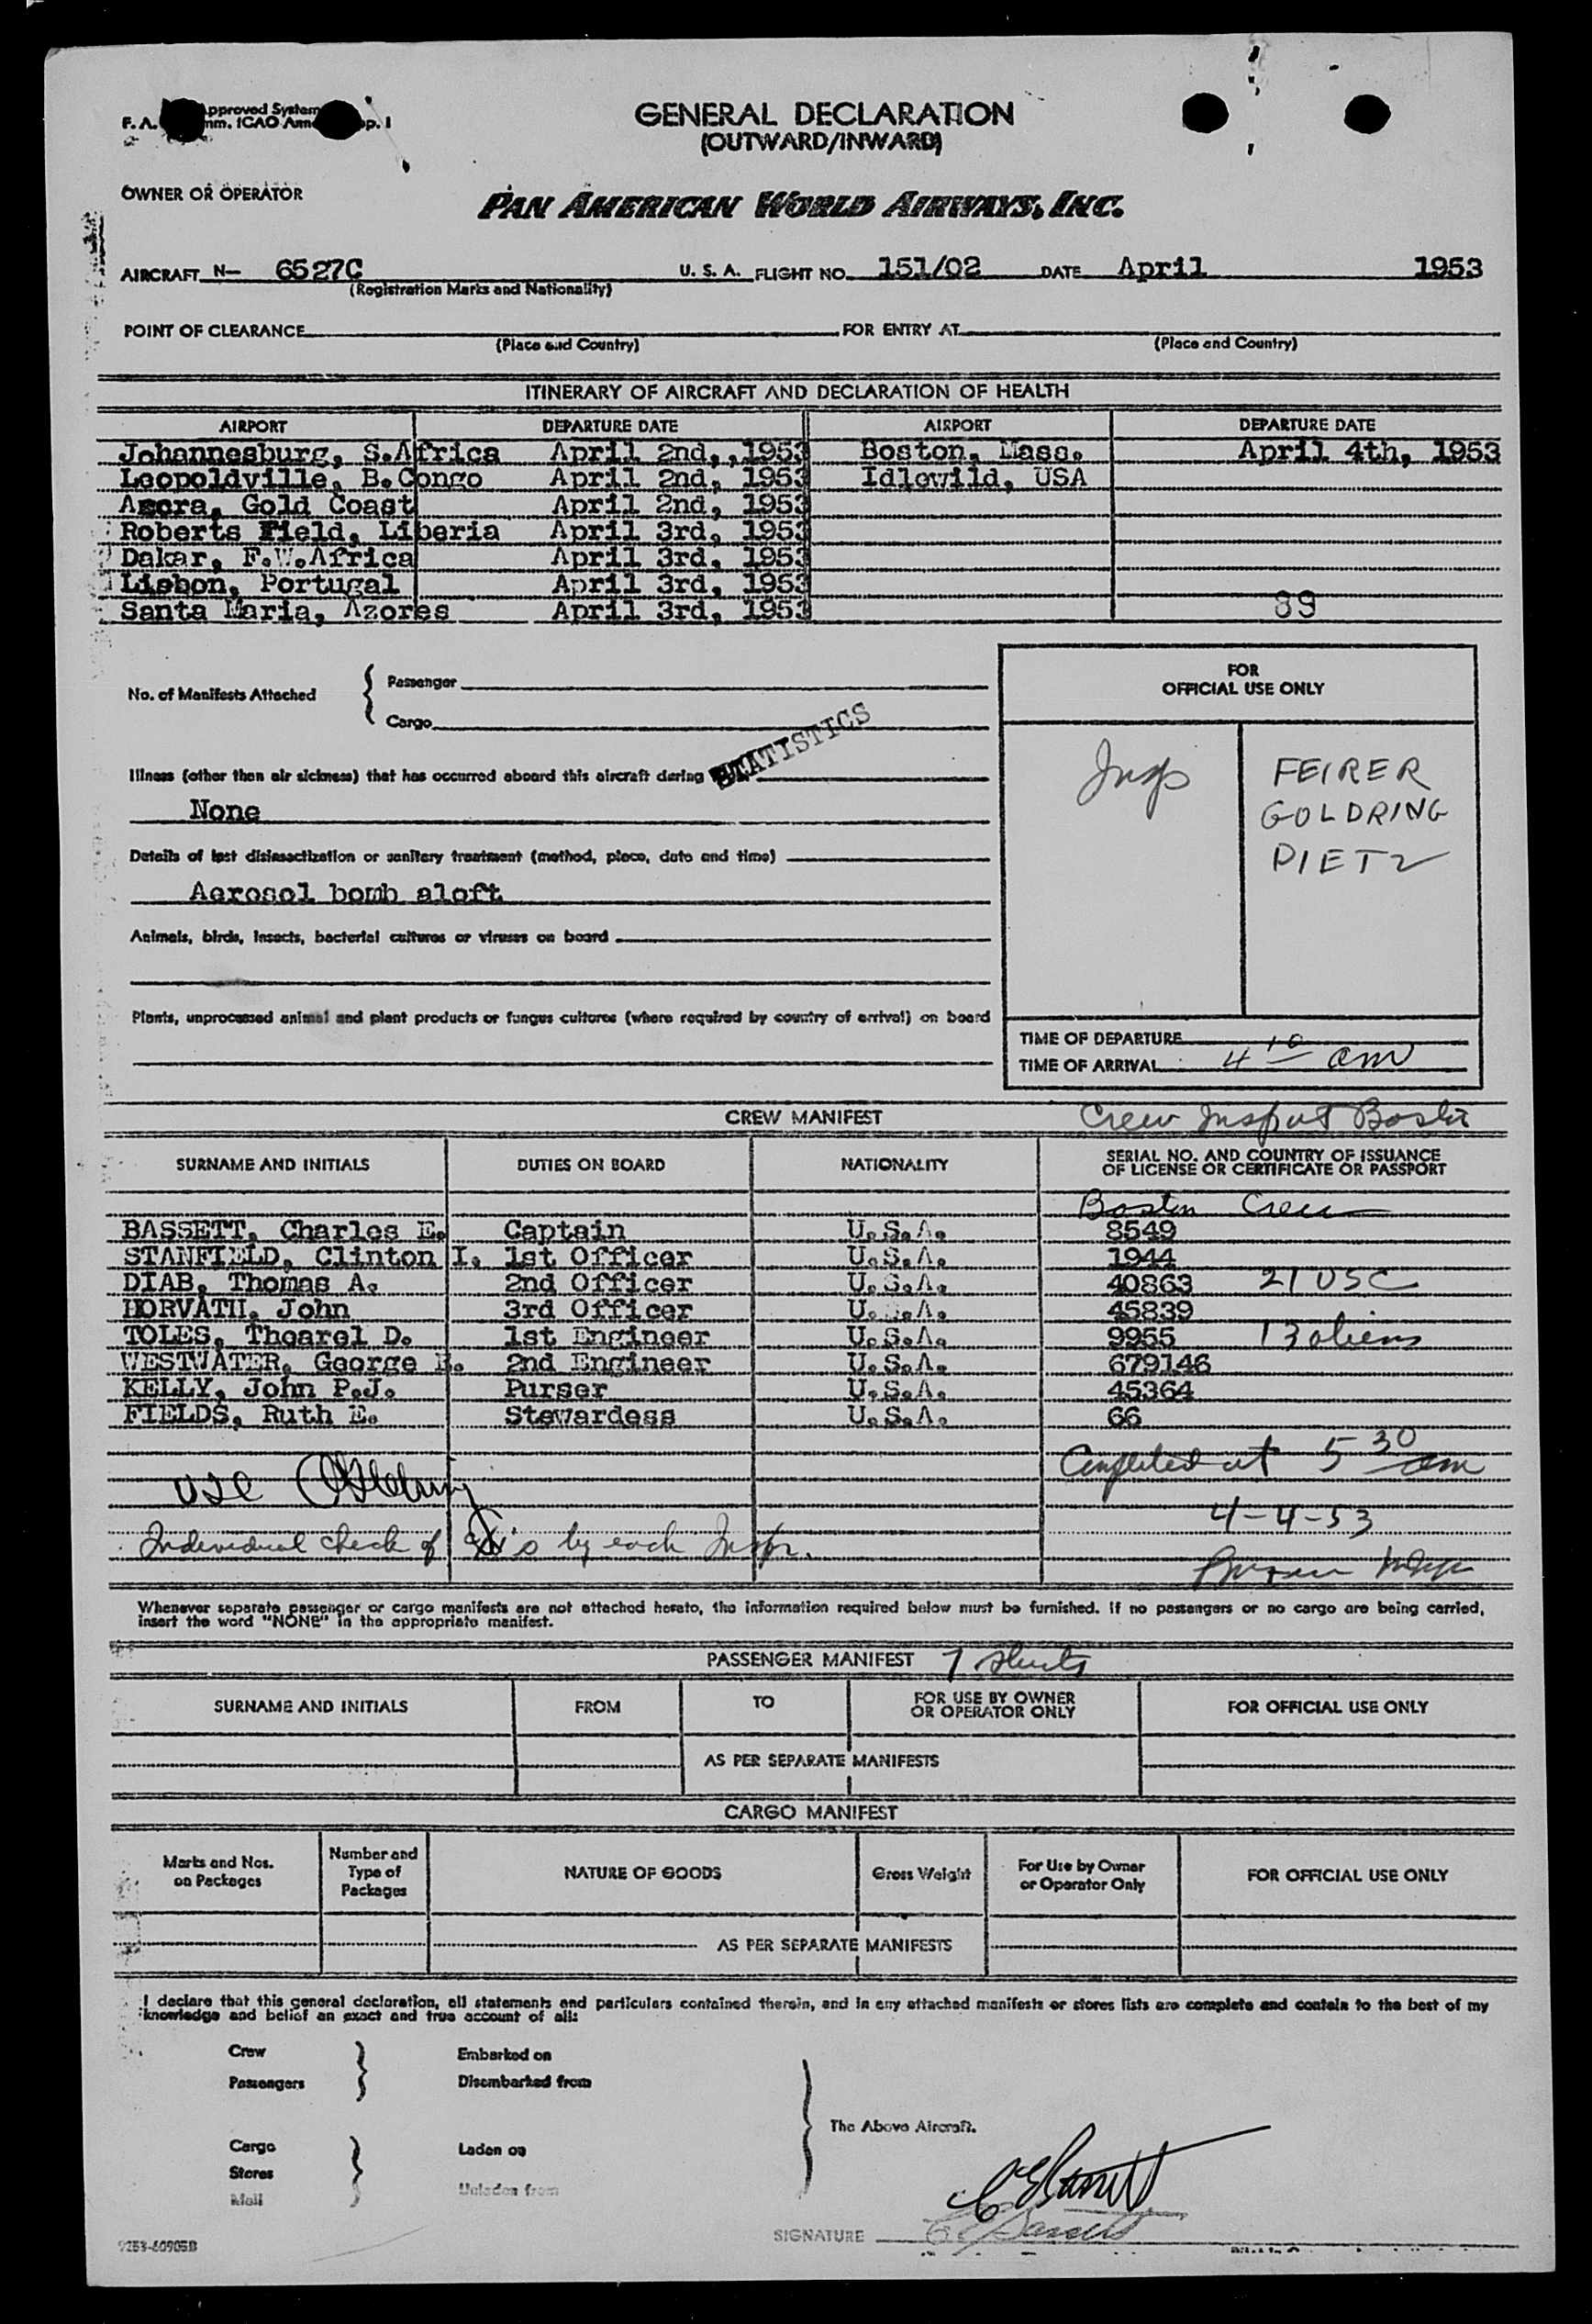 Approved System
F. A. mm. ICAO Ann p. I
GENERAL DECLARATION
(OUTWARD/INWARD)
OWNER OR OPERATOR
PAN AMERICAN WORLD AIRWAYS, INC.
AIRCRAFT N- 6527C U. S. A. FLIGHT NO. 151/02 DATE April 1953
(Registration Marks and Nationality)
POINT OF CLEARANCE FOR ENTRY AT
(Place and Country) (Place and Country)
ITINERARY OF AIRCRAFT AND DECLARATION OF HEALTH
AIRPORT DEPARTURE DATE AIRPORT DEPARTURE DATE
Johannesburg, S.Africa April 2nd,,1953 Boston, Mass. April 4th, 1953
Leopoldville, B.Congo April 2nd, 1953 Idlewild, USA
Accra, Gold Coast April 2nd, 1953
Roberts Field, Liberia April 3rd, 1953
Dakar, F.W.Africa April 3rd, 1953
Lisbon, Portugal April 3rd, 1953
Santa Maria, Azores April 3rd, 1953 89
FOR
OFFICIAL USE ONLY
No. of Manifests Attached
Passenger
Cargo
STATISTICS
Illness (other than air sickness) that has occurred aboard this aircraft during
None
Insp FEIRER
GOLDRING
DIETZ
Details of last disinsectization or sanitary treatment (method, place, date and time)
Aerosol bomb aloft
Animals, birds, insects, bacterial cultures or viruses on board
Plants, unprocessed animal and plant products or fungus cultures (where required by country of arrival) on board
TIME OF DEPARTURE
TIME OF ARRIVAL 4 10 am
CREW MANIFEST Crew Insp at Boston
SURNAME AND INITIALS DUTIES ON BOARD NATIONALITY SERIAL NO. AND COUNTRY OF ISSUANCE
OF LICENSE OR CERTIFICATE OR PASSPORT
Boston Crew
BASSETT, Charles E. Captain U.S.A. 8549
STANFIELD, Clinton I. 1st Officer U.S.A. 1944
DIAB, Thomas A. 2nd Officer U.S.A. 40863 21 USC
HORVATH, John 3rd Officer U.S.A. 45839
TOLES, Thearel D. 1st Engineer U.S.A. 9955 13 aliens
WESTWATER, George 2nd Engineer U.S.A. 679146
KELLY, John P.J. Purser U.S.A. 45364
FIELDS, Ruth E. Stewardess U.S.A. 66
Completed at 5 30 am
USC
4-4-53
Individual check of by each Inspr.
Whenever separate passenger or cargo manifests are not attached hereto, the information required below must be furnished. If no passengers or no cargo are being carried,
insert the word "NONE" in the appropriate manifest.
PASSENGER MANIFEST 7 sheets
SURNAME AND INITIALS FROM TO FOR USE BY OWNER
OR OPERATOR ONLY FOR OFFICIAL USE ONLY
AS PER SEPARATE MANIFESTS
CARGO MANIFEST
Marks and Nos.
on Packages Number and
Type of
Packages NATURE OF GOODS Gross Weight For Use by Owner
or Operator Only FOR OFFICIAL USE ONLY
AS PER SEPARATE MANIFESTS
I declare that this general declaration, all statements and particulars contained therein, and in any attached manifests or stores lists are complete and contain to the best of my
knowledge and belief an exact and true account of all:
Crew Embarked on
Passengers Disembarked from
The Above Aircraft.
Cargo Laden on
Stores
Mail Unladen from
CEBassett
SIGNATURE CEBassett
9253-60905B